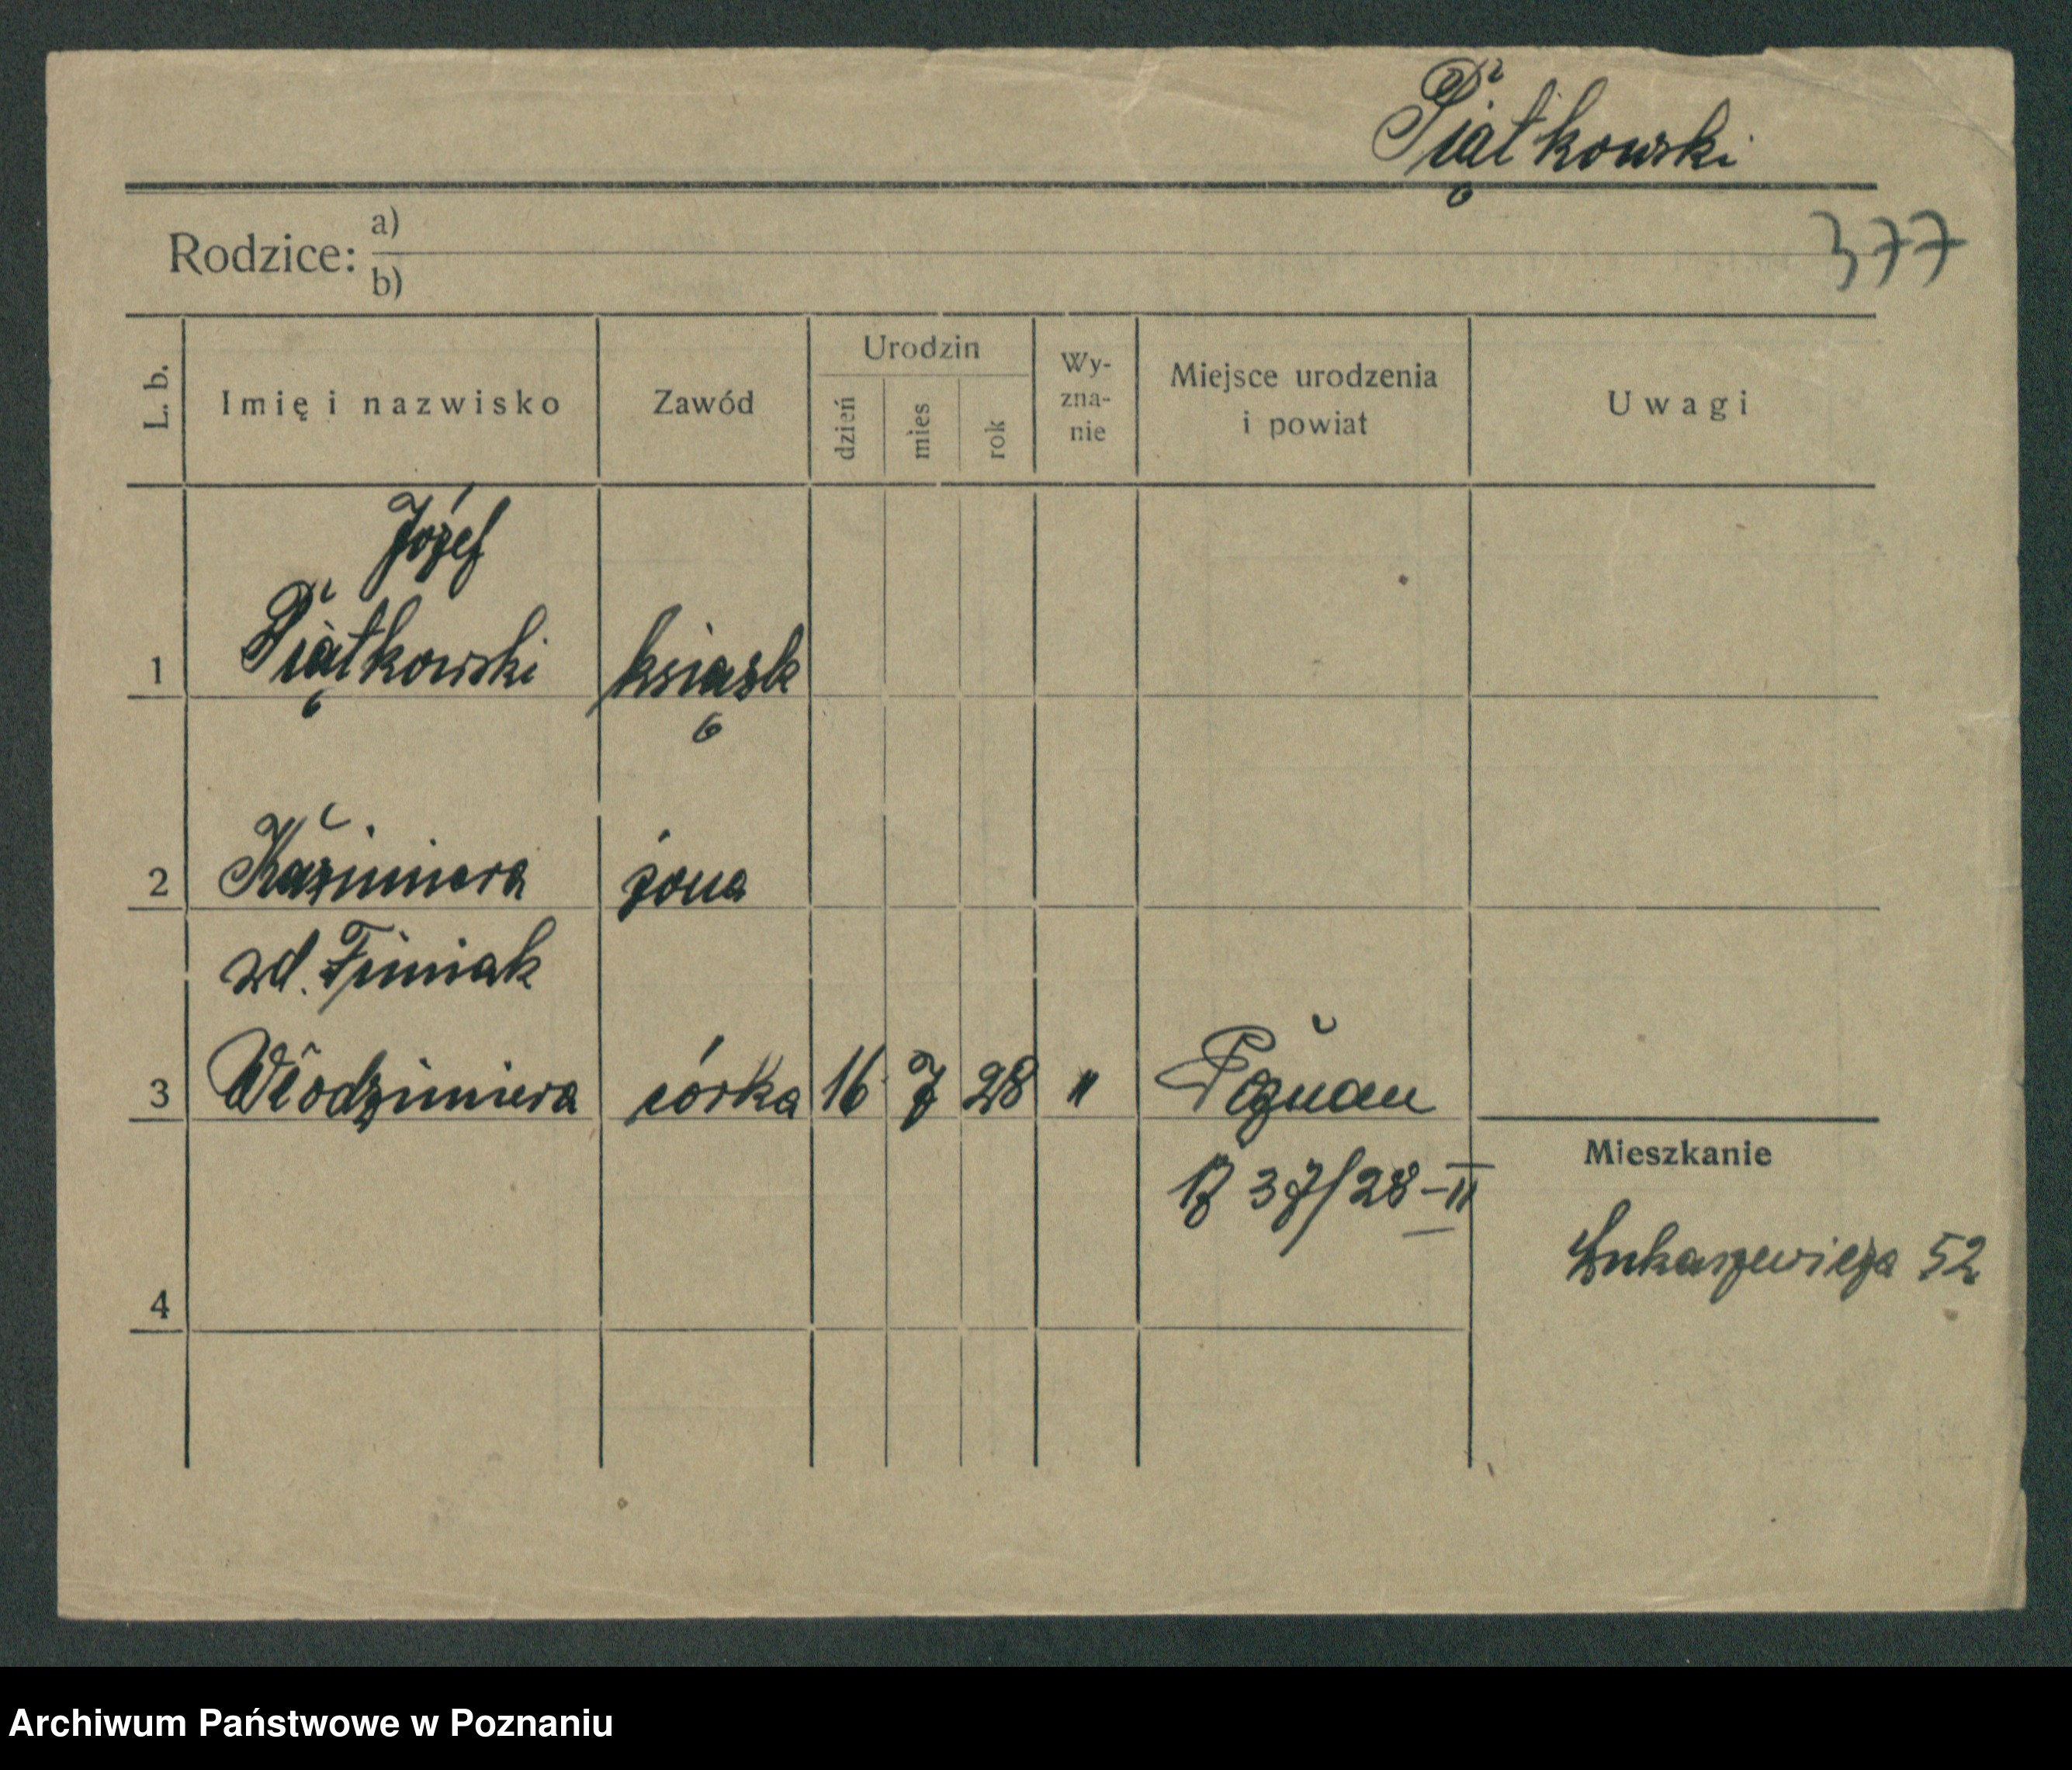 Piątkowski
377
Rodzice: a)
b)
L. b. Imię i nazwisko Zawód Urodzin dzień mies rok Wy-zna-nie Miejsce urodzenia i powiat Uwagi
Józef
1 Piątkowski książk
2 Kazimiera żona
zd.
3 Włodzimiera córka 16 7 28 " Poznań
37/28-II
Mieszkanie
Łukaszewicza 52
4
Archiwum Państwowe w Poznaniu